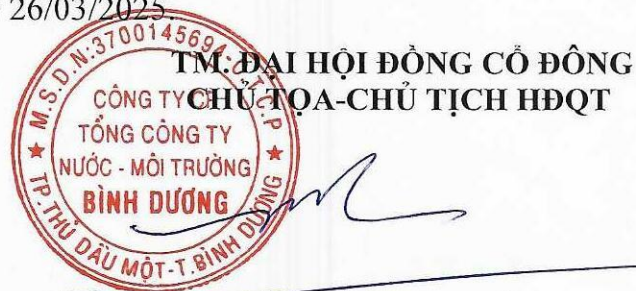 26/03/2025.
TM. ĐẠI HỘI ĐỒNG CỔ ĐÔNG
CHỦ TỌA-CHỦ TỊCH HĐQT
M.S.D.N:3700145694-C.T.C.P
CÔNG TY CP
TỔNG CÔNG TY
NƯỚC - MÔI TRƯỜNG
BÌNH DƯƠNG
TP.THỦ DẦU MỘT-T.BÌNH DƯƠNG